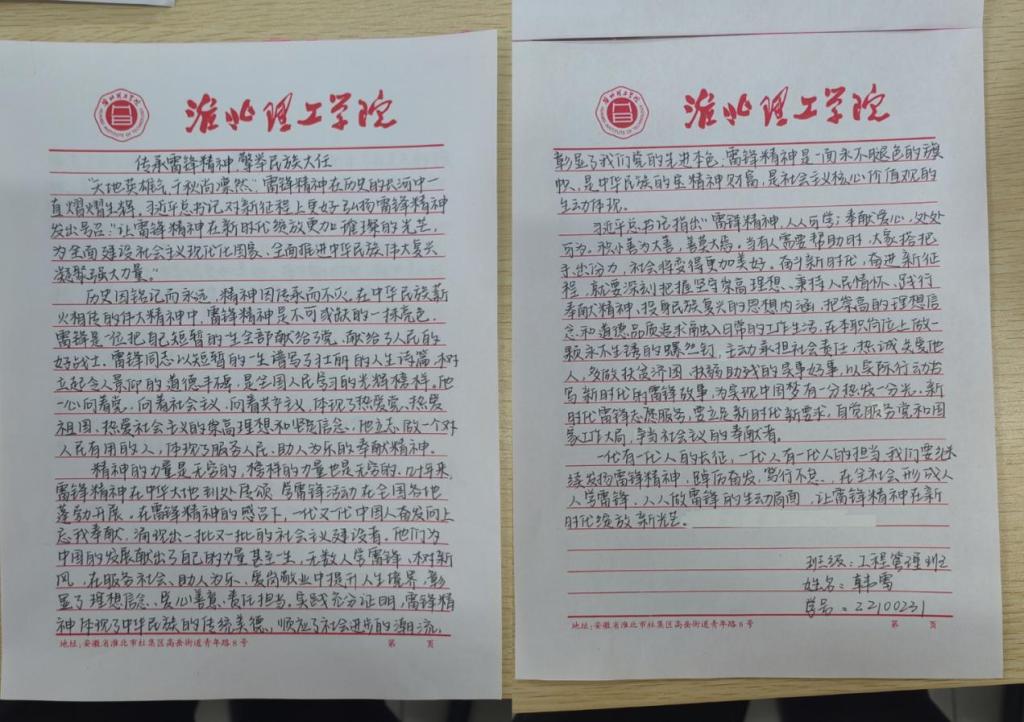 淮北理工学院
传承雷锋精神 擎举民族大任
"天地英雄气,千秋尚凛然",雷锋精神在历史的长河中一
直熠熠生辉。习近平总书记对新征程上更好弘扬雷锋精神
发出号召:"让雷锋精神在新时代绽放更加璀璨的光芒,
为全面建设社会主义现代化国家、全面推进中华民族伟大复兴
凝聚强大力量。"
历史因铭记而永远,精神因传承而不灭。在中华民族薪
火相传的伟大精神中,雷锋精神是不可或缺的一抹亮色。
雷锋是一位把自己短暂的一生全部献给了党、献给了人民的
好战士。雷锋同志以短暂的一生谱写了壮丽的人生诗篇,树
立起令人景仰的道德丰碑,是全国人民学习的光辉榜样。他
一心向着党、向着社会主义、向着共产主义,体现了热爱党、热爱
祖国、热爱社会主义的崇高理想和坚定信念。他立志做一个对
人民有用的人,体现了服务人民、助人为乐的奉献精神。
精神的力量是无穷的,榜样的力量也是无穷的。几十年来,
雷锋精神在中华大地到处传颂,学雷锋活动在全国各地
蓬勃开展。在雷锋精神的感召下,一代又一代中国人奋发向上
忘我奉献,涌现出一批又一批的社会主义建设者。他们为
中国的发展献出了自己的力量甚至一生,无数人学雷锋、树新
风,在服务社会、助人为乐、爱岗敬业中提升人生境界,彰
显了理想信念、爱心善意、责任担当。实践充分证明,雷锋精
神体现了中华民族的传统美德,顺应了社会进步的潮流,
地址:安徽省淮北市杜集区高岳街道青年路8号 第 页
淮北理工学院
彰显了我们党的先进本色;雷锋精神是一面永不褪色的旗
帜,是中华民族的宝精神财富,是社会主义核心价值观的
生动体现。
习近平总书记指出"雷锋精神,人人可学;奉献爱心,处处
可为。积小善为大善,善莫大焉。当有人需要帮助时,大家搭把
手、出份力,社会将变得更加美好。奋斗新时代,奋进新征
程,就要深刻把握坚守崇高理想、秉持人民情怀、践行
奉献精神,投身民族复兴的思想内涵,把崇高的理想信
念和道德品质追求融入日常的工作生活,在本职岗位上做一
颗永不生锈的螺丝钉,主动承担社会责任,热诚关爱他
人,多做扶贫济困、扶弱助残的实事好事,以实际行动书
写新时代的雷锋故事,为实现中国梦有一分热发一分光。新
时代雷锋志愿服务,要立足新时代新要求,自觉服务党和国
家工作大局,争当社会主义的奉献者。
一代有一代人的长征,一代人有一代人的担当。我们要继
续发扬雷锋精神,踔厉奋发、笃行不怠,在全社会形成人
人学雷锋、人人做雷锋的生动局面,让雷锋精神在新
时代绽放新光芒。
班级:工程管理班2
姓名:韩雪
学号:22100231
地址:安徽省淮北市杜集区高岳街道青年路8号 第 页